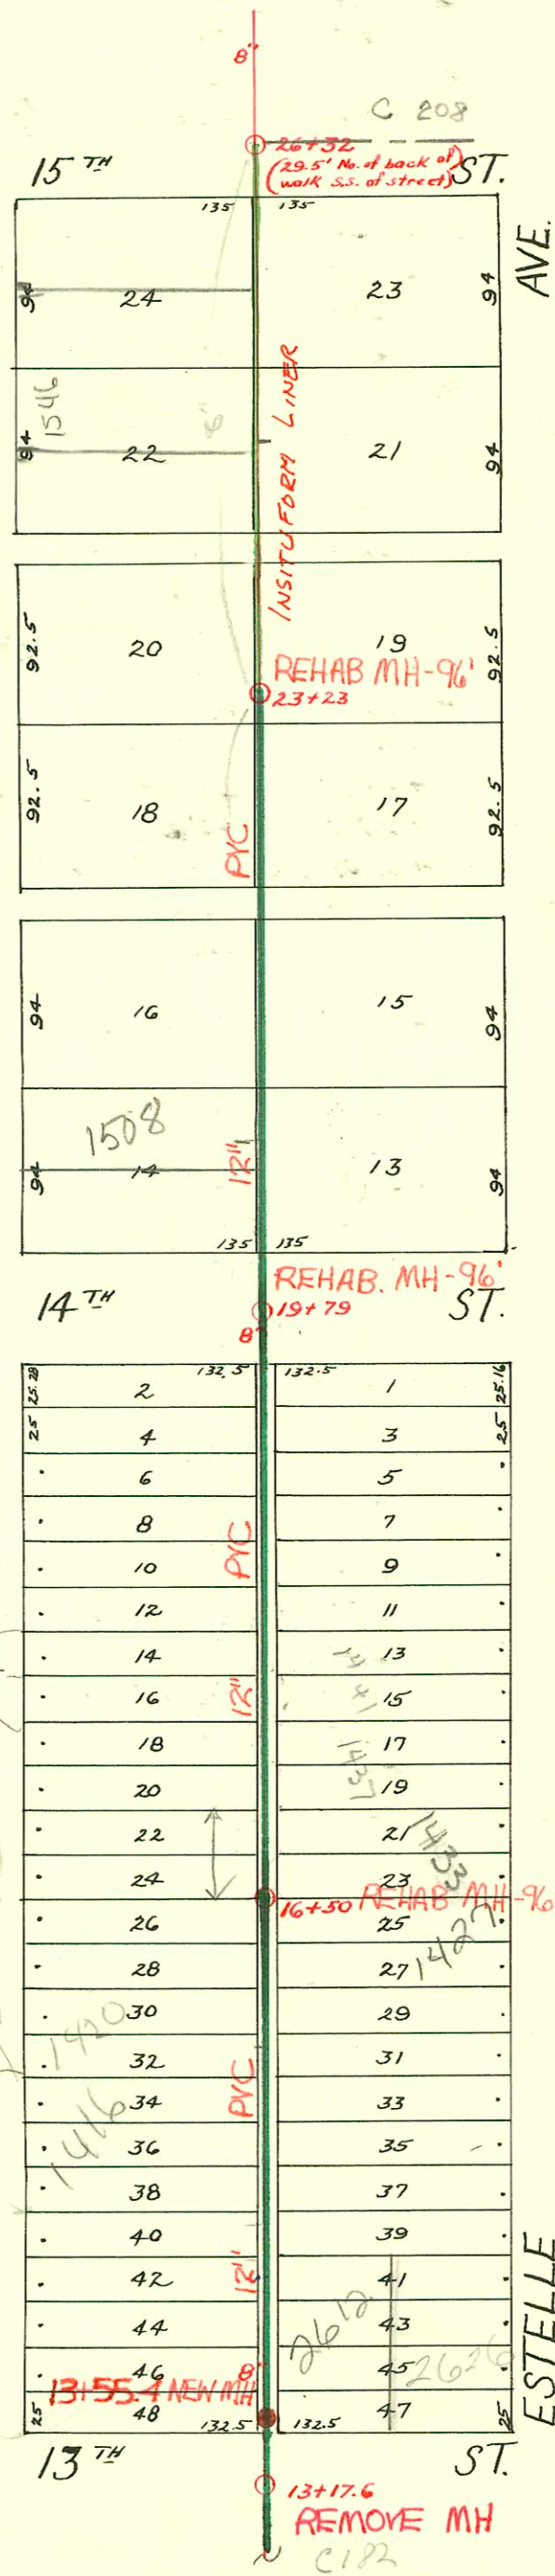 8"
C 208
26+32
(29.5' No. of back of
walk S.S. of street)
15 TH ST.
AVE.
135 135
94 24 23 94
1546
94 22 21 94
6"
INSITUFORM LINER
92.5 20 19 92.5
REHAB MH-96'
23+23
92.5 18 17 92.5
PVC
94 16 15 94
1508
12"
94 14 13 94
135 135
REHAB. MH-96'
14 TH ST.
19+79
8"
132.5 132.5
25.28 2 1 25.16
25 4 3 25
6 5
8 7
PVC
10 9
12 11
14 13
1441
16 15
12"
18 17
1437
20 19
22 21
1433
24 23
16+50 REHAB MH-96
26 25
1427
28 27
30 29
1420
32 31
PVC
34 33
1416
36 35
38 37
40 39
42 41
12"
2612
44 43
46 45
8"
2626
13+55.4 NEW MH
25 48 47 25
132.5 132.5
ESTELLE
13 TH ST.
13+17.6
REMOVE MH
C182